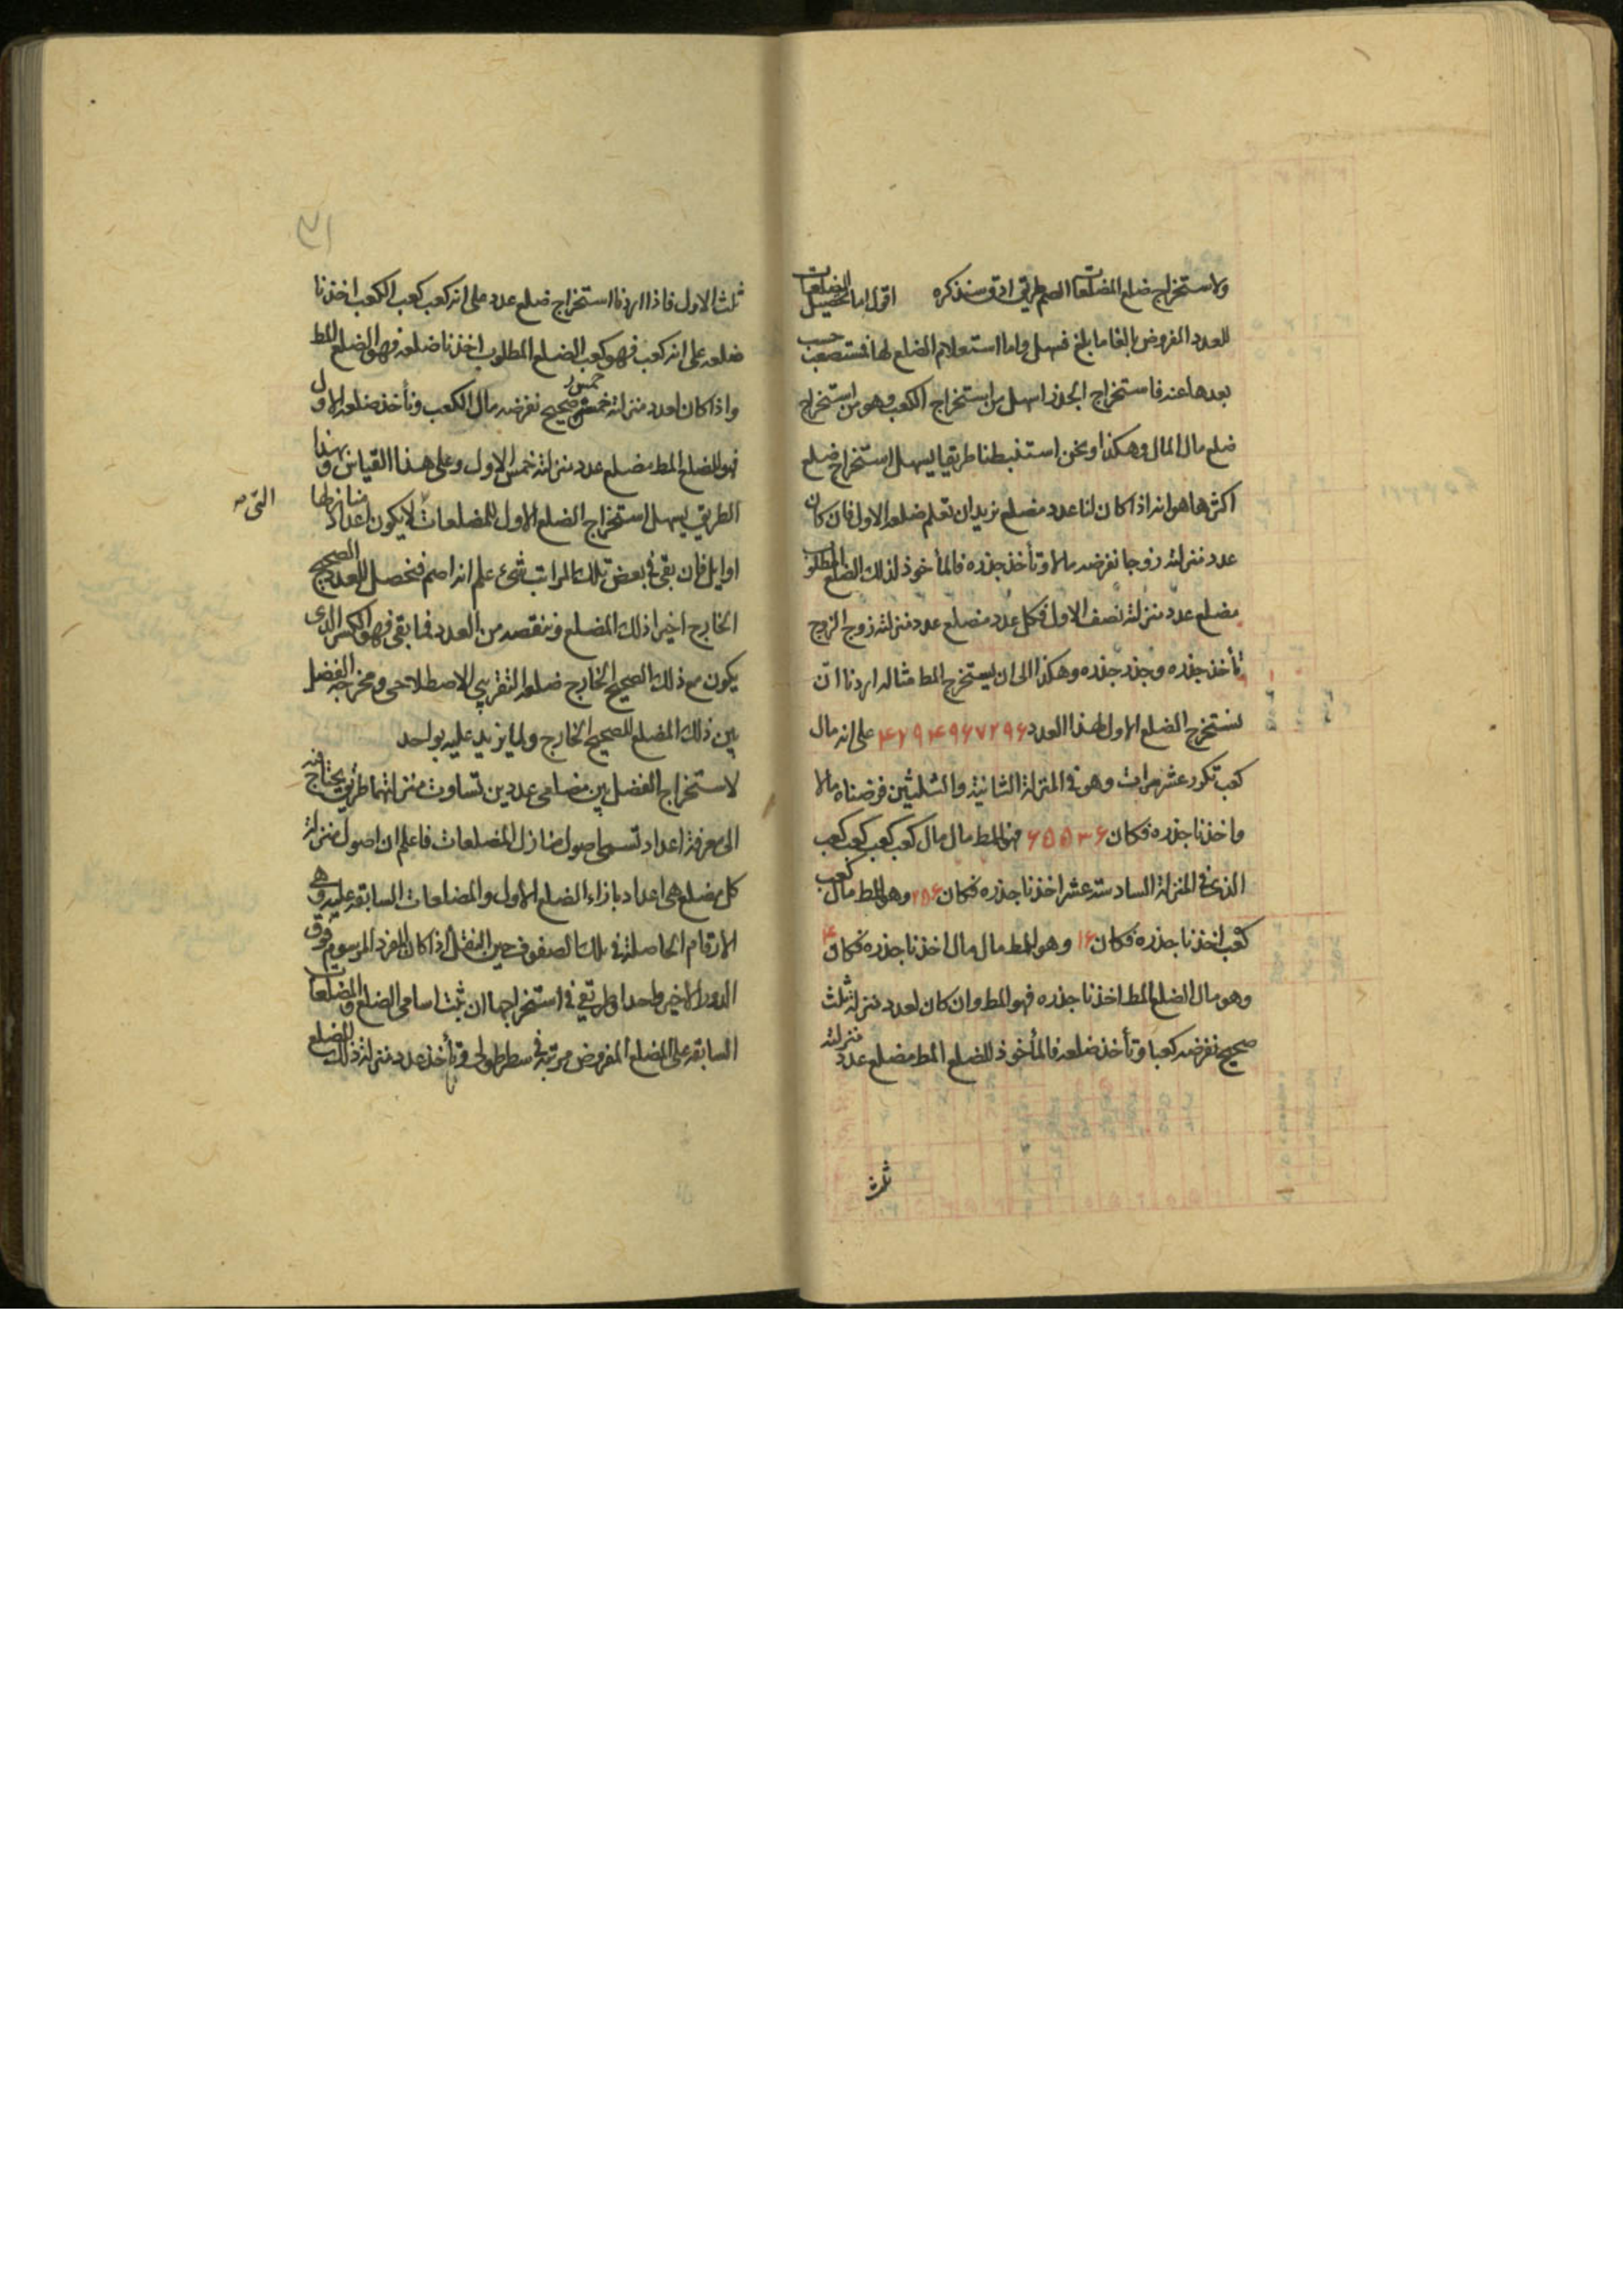 ولاستخراج ضلع المضلعات الصم طريق ادق سنذكره اقول اما تحصيل المضلعات
للعدد المفروض بالغا ما بلغ فسهل واما استعلام الضلع لها فمستصعب حسب
بعدها عنه فاستخراج الجذر اسهل من استخراج الكعب وهو من استخراج
ضلع مال المال وهكذا ونحن استنبطنا طريقا يسهل استخراج ضلع
اكثرها هو انه اذا كان لنا عدد مضلع نريد ان نعلم ضلعه الاول فان كان
عدد منزلته زوجا نفرضه مالا و نأخذ جذره فالمأخوذ لذلك الضلع المطلوب
مضلع عدد منزلته نصف الاول فكل عدد مضلع عدد منزلته زوج الزوج
نأخذ جذره وجذر جذره وهكذا الى ان يستخرج المط مثاله اردنا ان
نستخرج الضلع الاول لهذا العدد ۴۲۹۴۹۶۷۲۹۶ على انه مال
كعب تكرر عشر مرات وهو في المنزلة الثانية والثلثين فرضناه مالا
واخذنا جذره فكان ۶۵۵۳۶ فهو للمط مال مال كعب كعب كعب كعب
الذي في المنزلة السادسة عشر اخذنا جذره فكان ۲۵۶ وهو للمط مال كعب
كعب اخذنا جذره فكان ۱۶ وهو للمط مال مال اخذنا جذره فكان ۴
وهو مال الضلع المط اخذنا جذره فهو المط وان كان لعدد منزلته ثلث
صحيح نفرضه كعبا و نأخذ ضلعه فالمأخوذ للضلع المط مضلع عدد منزلته
ثلث
ثلث الاول فاذا اردنا استخراج ضلع عدد على انه كعب كعب الكعب اخذنا
ضلعه على انه كعب فهو كعب الضلع المطلوب اخذنا ضلعه فهو الضلع المط
واذا كان لعدد منزلته خمس صحيح نفرضه مال الكعب ونأخذ ضلعه الاول
فهو للضلع المط مضلع عدد منزلته خمس الاول وعلى هذا القياس وبهذا
الطريق يسهل استخراج الضلع الاول للمضلعات لا يكون اعداد منازلها
التي
اوايل فان بقي في بعض تلك المراتب شيء علم انه اصم فنحصل للعدد الصحيح
الخارج اخيرا ذلك المضلع وننقصه من العدد فما بقي فهو الكسر الذي
يكون مع ذلك الصحيح الخارج ضلعه التقريبي الاصطلاحي ومخرجه الفضل
بين ذلك المضلع للصحيح الخارج ولما يزيد عليه بواحد
لاستخراج الفضل بين مضلعي عددين تساوت منزلتهما طريق يحتاج فيه
الى معرفة اعداد تسمى اصول منازل المضلعات فاعلم ان اصول منزلة
كل مضلع هي اعداد بازاء الضلع الأول والمضلعات السابقة عليه وهي
الارقام الحاصلة في تلك الصفوف حين النقل اذا كان المفرد المرسوم فوق
الدور الاخير واحدا وطريقي في استخراجها ان نثبت اسامي الضلع والمضلعات
السابقة على المضلع المفروض مرتبة في سطر طولي ونأخذ عدد منزلة ذلك المضلع